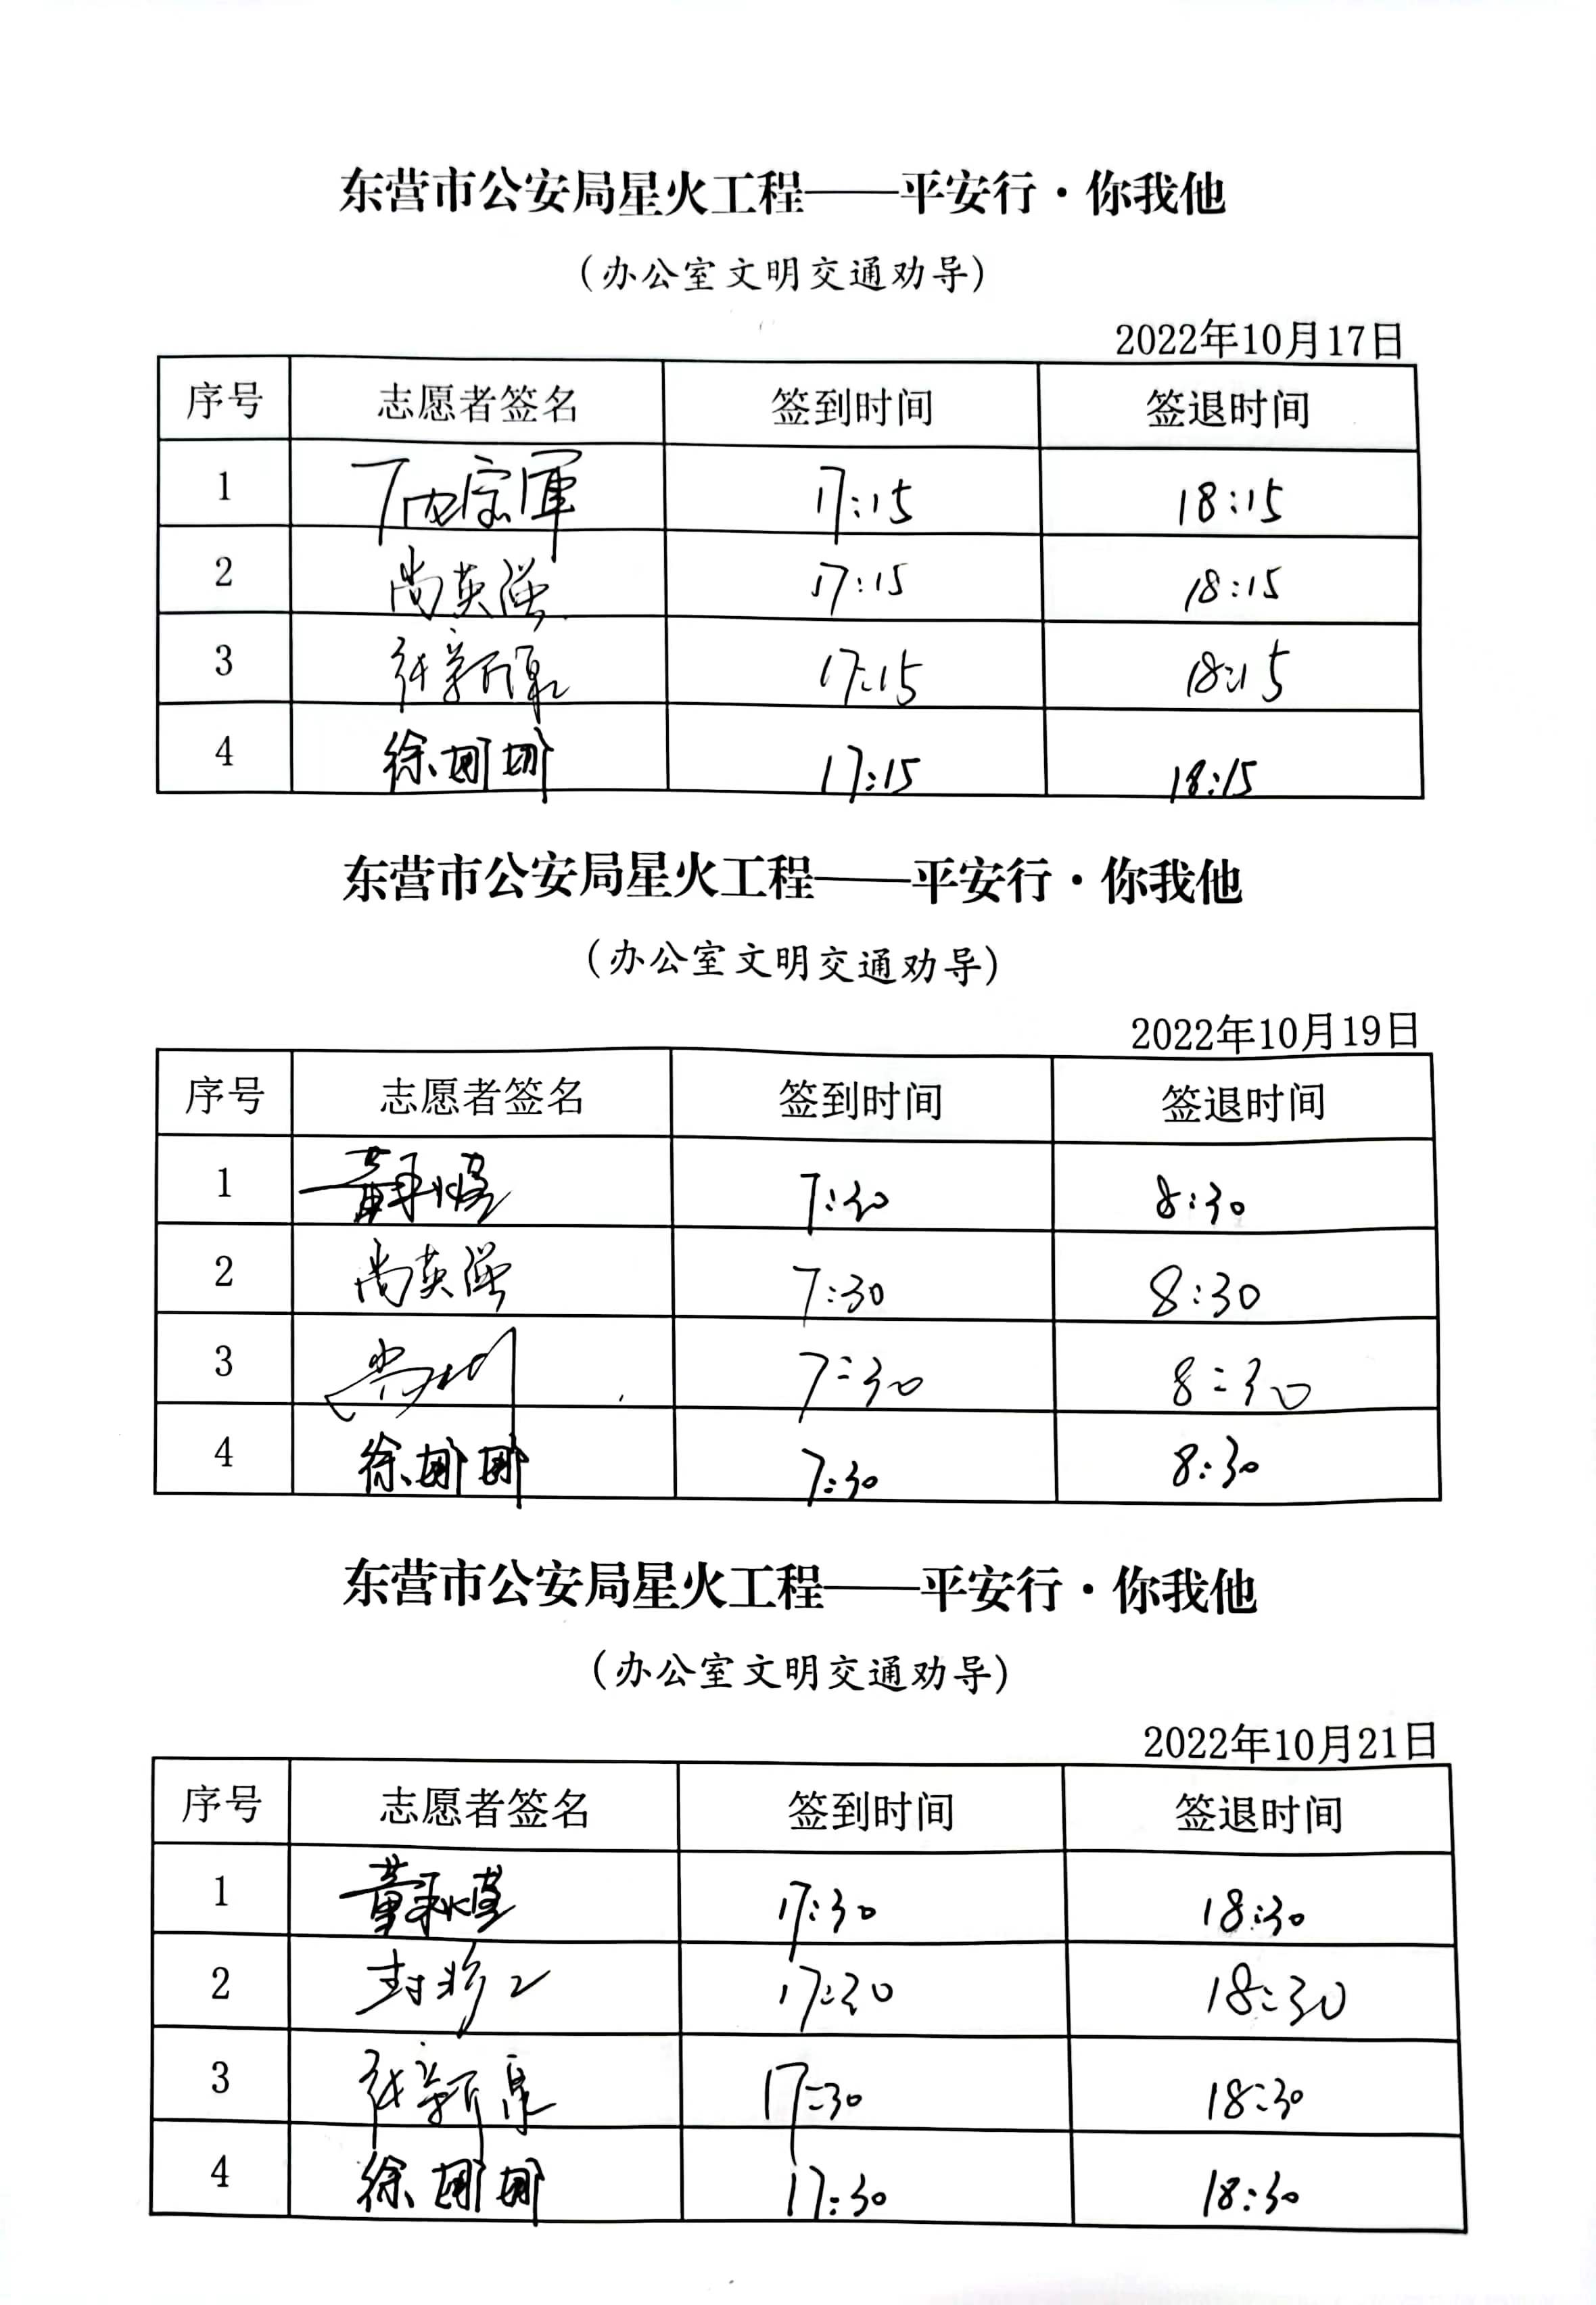 东营市公安局星火工程——平安行·你我他
（办公室文明交通劝导）
2022年10月17日
序号 志愿者签名 签到时间 签退时间
1 17:15 18:15
2 尚英强 17:15 18:15
3 张新泉 17:15 18:15
4 徐娜娜 17:15 18:15
东营市公安局星火工程——平安行·你我他
（办公室文明交通劝导）
2022年10月19日
序号 志愿者签名 签到时间 签退时间
1 7:30 8:30
2 尚英强 7:30 8:30
3 7:30 8:30
4 徐娜娜 7:30 8:30
东营市公安局星火工程——平安行·你我他
（办公室文明交通劝导）
2022年10月21日
序号 志愿者签名 签到时间 签退时间
1 17:30 18:30
2 17:30 18:30
3 张新泉 17:30 18:30
4 徐娜娜 17:30 18:30